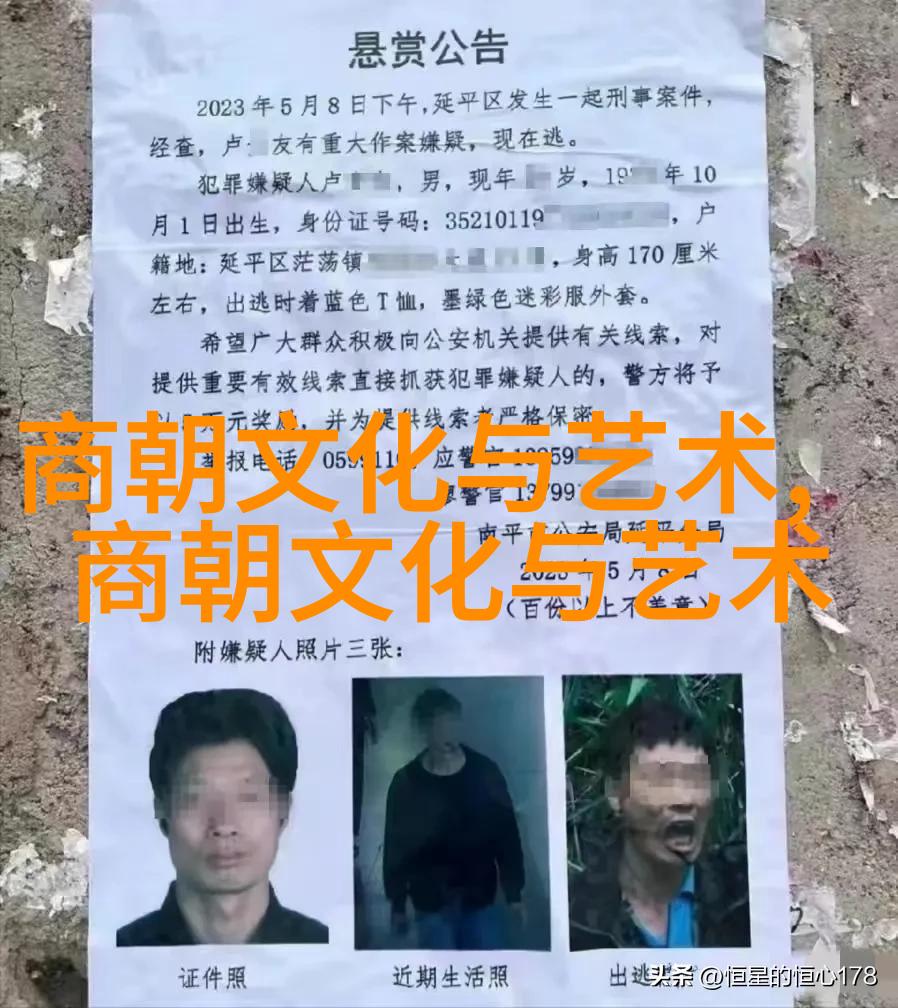 悬赏公告
2023年5月8日下午,延平区发生一起刑事案件,
经查,卢 友有重大作案嫌疑,现在逃。
犯罪嫌疑人卢 ,男,现年 岁,19 年10
月1日出生,身份证号码:35210119 ,户
籍地:延平区茫荡镇 ,身高170厘米
左右,出逃时着蓝色T恤,墨绿色迷彩服外套。
希望广大群众积极向公安机关提供有关线索,对
提供重要有效线索直接抓获犯罪嫌疑人的,警方将予
万元奖励,并为提供线索者严格保密
商朝文化与艺术,
举报电话 应警官
警官
商朝文化与艺术
南平市公安局延平分局
2023年5月8日
(百份以上不盖章)
附嫌疑人照片三张:
证件照 近期生活照 出逃
头条 @恒星的恒心178